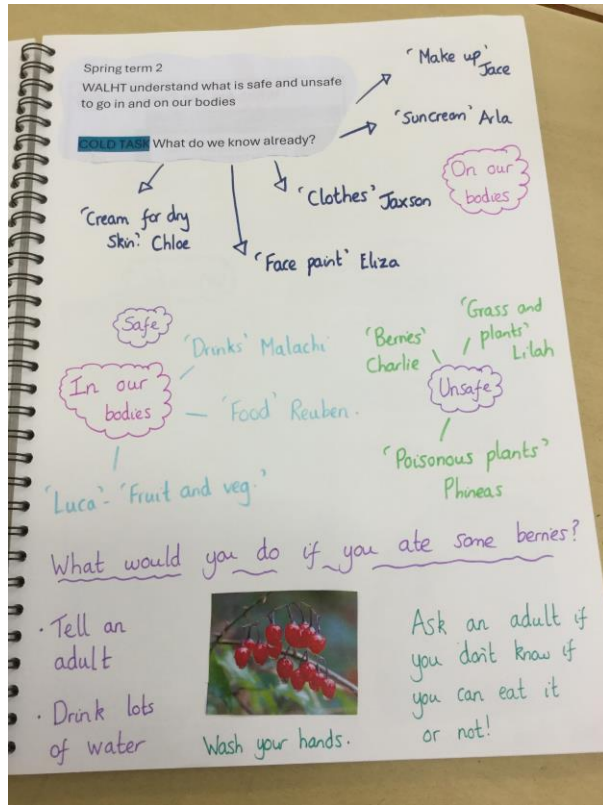 Spring term 2
WALHT understand what is safe and unsafe
to go in and on our bodies
COLD TASK What do we know already?
'Make up'
Jace
'Suncream' Arla
On our
bodies
'Clothes' Jaxson
'Cream for dry
Skin.' Chloe
'Face paint' Eliza
Safe
In our
bodies
'Drinks' Malachi
'Food' Reuben.
'Luca'- 'Fruit and veg.'
'Grass and
plants'
Lilah
'Berries'
Charlie
Unsafe
'Poisonous plants'
Phineas
What would you do if you ate some berries?
· Tell an
adult
· Drink lots
of water
Wash your hands.
Ask an adult if
you don't know if
you can eat it
or not!